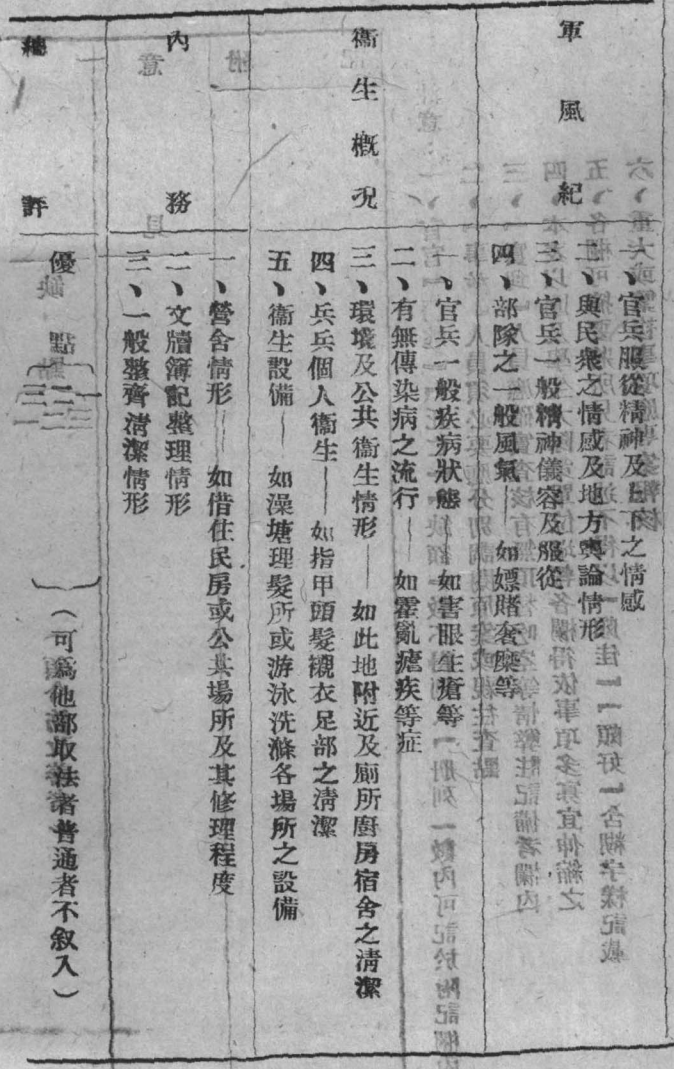 軍風紀
一、官兵服從精神及上下之情感
二、與民衆之情感及地方輿論情形
三、官兵一般精神儀容及服從
四、部隊之一般風氣——如嫖賭奢糜等
衞生概况
一、官兵一般疾病狀態——如害眼生瘡等
二、有無傳染病之流行——如霍亂瘧疾等症
三、環境及公共衞生情形——如此地附近及廁所廚房宿舍之清潔
四、兵兵個人衞生——如指甲頭髮襯衣足部之清潔
五、衞生設備——如澡塘理髮所或游泳洗滌各塲所之設備
內務
一、營舍情形——如借住民房或公共塲所及其修理程度
二、文牘簿記整理情形
三、一般整齊清潔情形
總評
優點 一二三
缺點 一二三
（可爲他部取法者普通者不叙入）